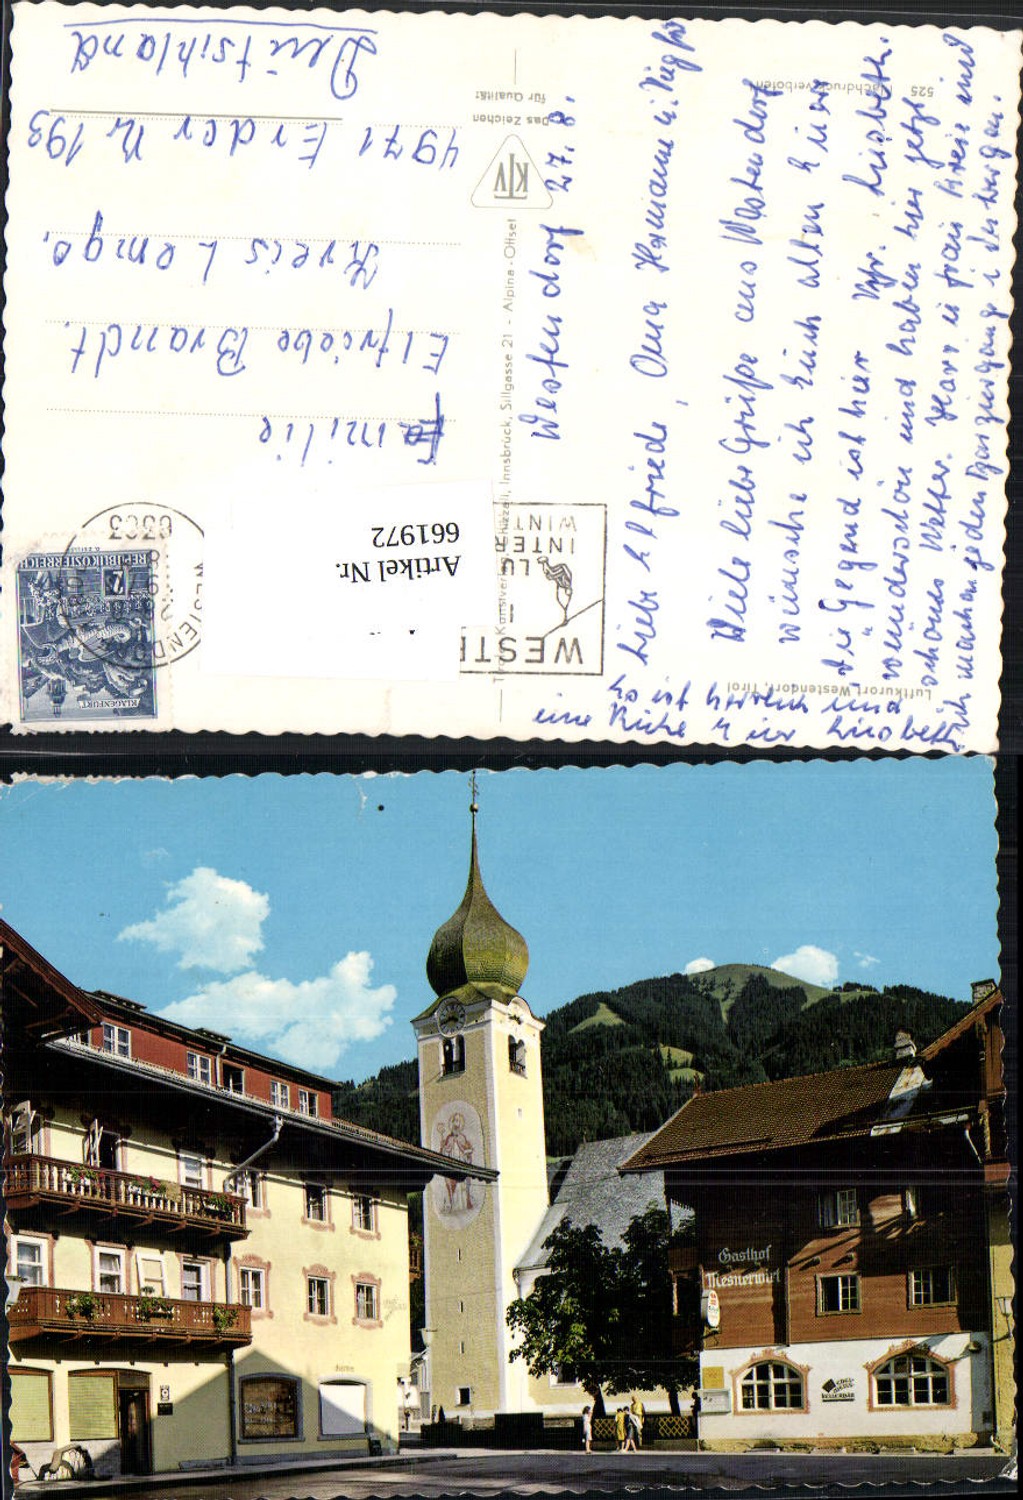 Westendorf 27.8.
Liebe Elfriede, Oma Hermann u. Siegfr
Viele liebe Grüße aus Westendorf
wünsche ich Euch allen Eure
Lisbeth.
die Gegend ist hier
wunderschön und haben hier jetzt
schönes Wetter.
ich machen jeden Tag
es ist herrlich und
eine Ruhe hier Lisbeth
Familie
Elfriede Brandt.
Kreis Lemgo.
4971 Erder Nr 193
Deutschland
Artikel Nr.
661972
Luftkurort Westendorf, Tirol
525 Nachdruck verboten
Das Zeichen
für Qualität
KTV
Tiroler Kunstverlag Chizzali, Innsbruck, Sillgasse 21 - Alpina-Offset
REPUBLIK ÖSTERREICH
2
KLAGENFURT
6363
WESTENDORF
WESTE
LU
INTER
WINT
Gasthof
Mesnerwirt
KELLERBAR